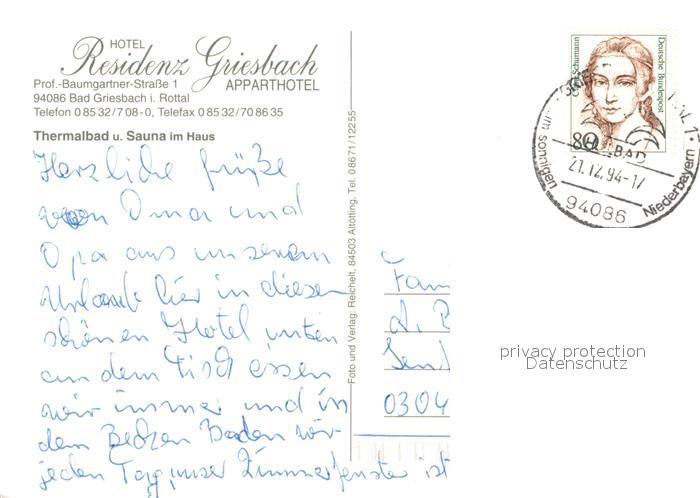 HOTEL
Residenz Griesbach
APPARTHOTEL
Prof.-Baumgartner-Straße 1
94086 Bad Griesbach i. Rottal
Telefon 0 85 32/7 08-0, Telefax 0 85 32/70 86 35
Thermalbad u. Sauna im Haus
Herzliche Grüße
von Oma und
Opa aus unserem
Urlaub hier in diesen
schönen Hotel unten
an dem Tisch essen
wir immer und in
dem Becken Baden wir
jeden Tag, unser Zimmerfenster ist
Foto und Verlag: Reichelt, 84503 Altötting, Tel. 08671/12255
Fam
0304
Clara Schumann
Deutsche Bundespost
80
BAD
21.12.94-17
94086
im sonnigen
Niederbayern
privacy protection
Datenschutz